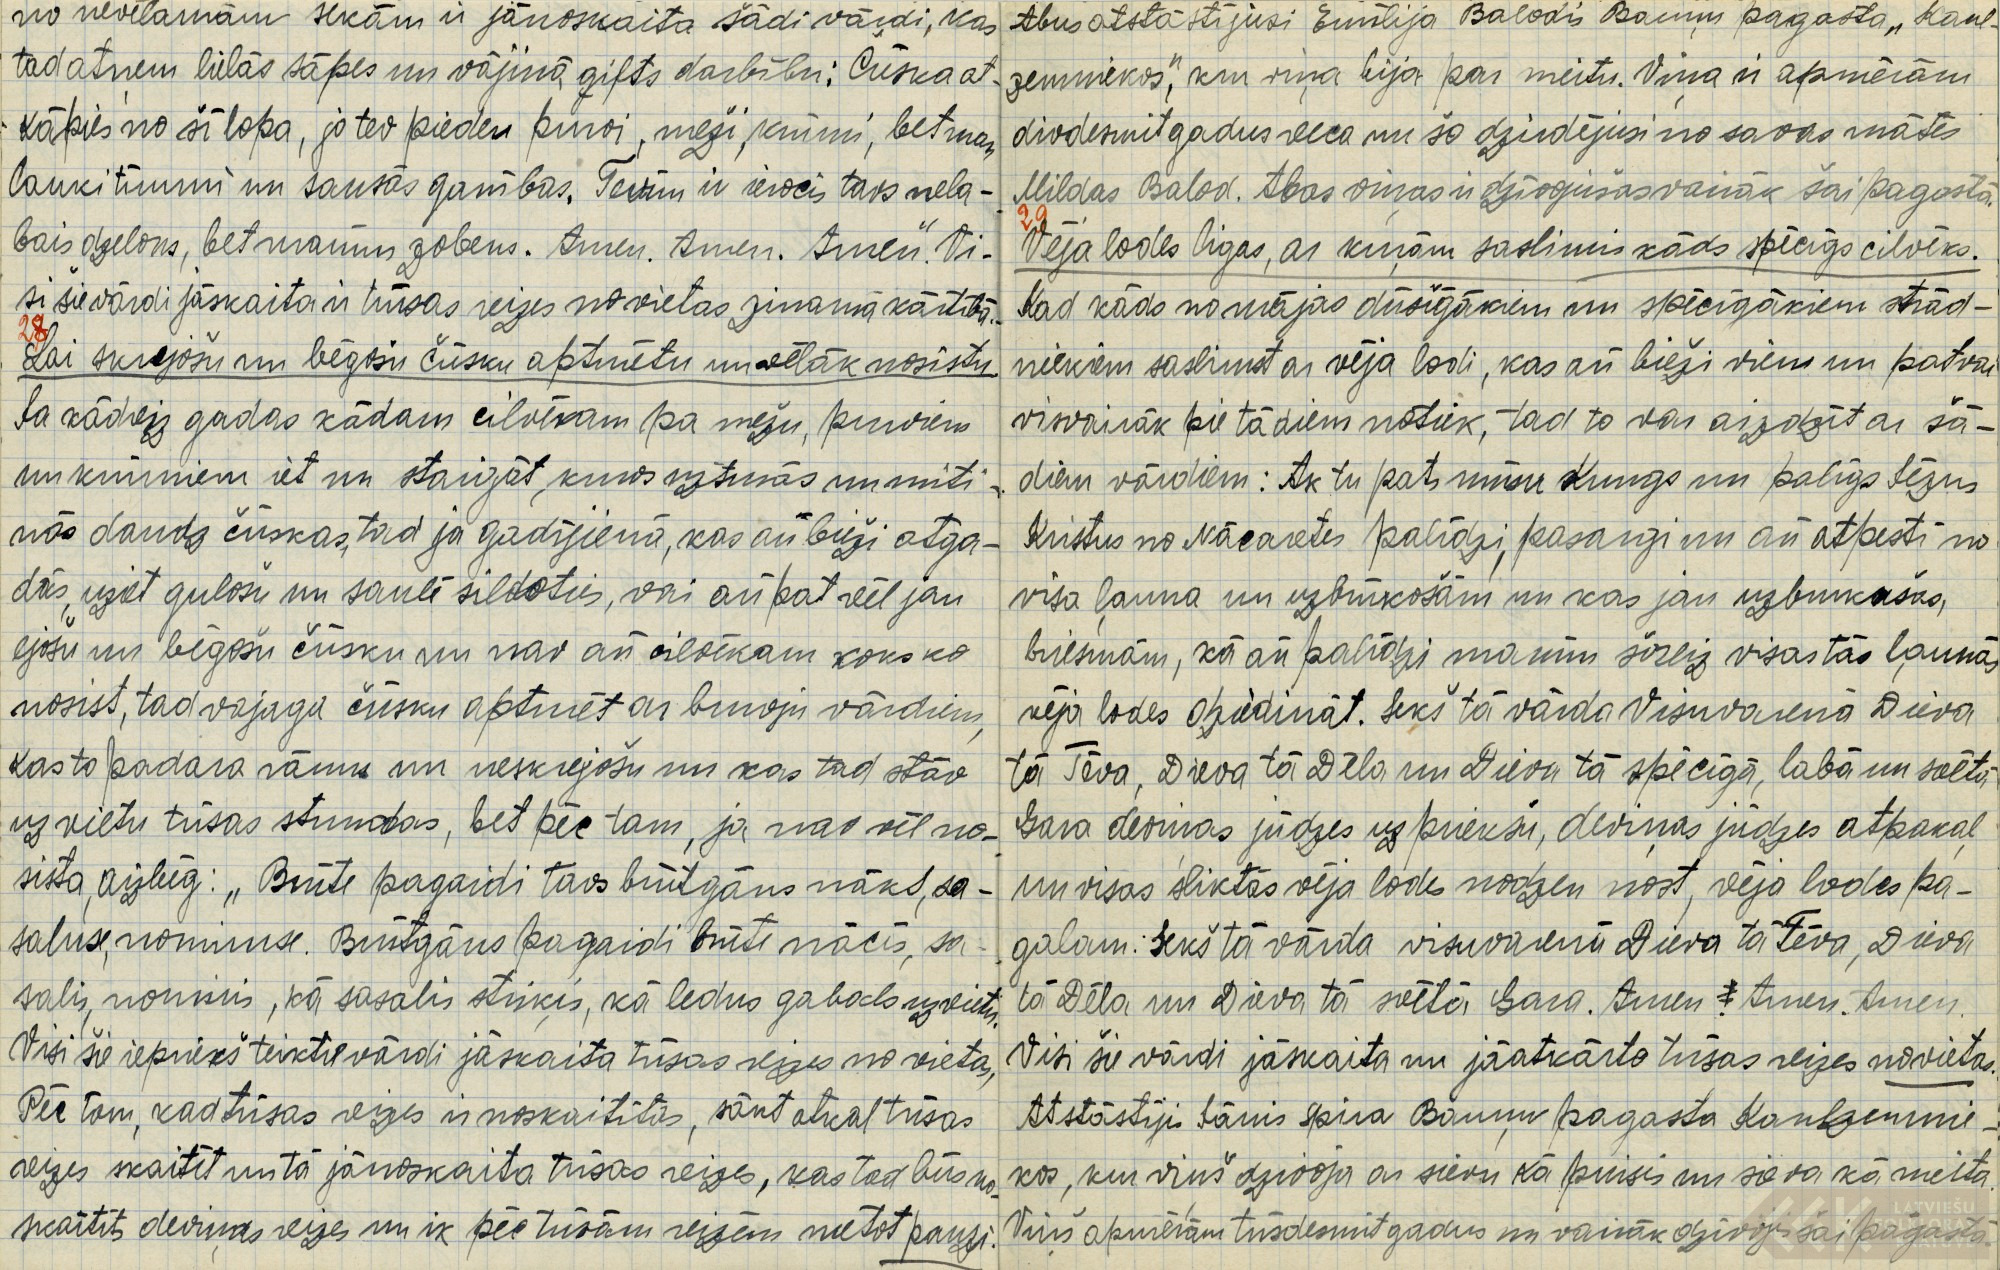 no nevēlamām sekām ir jānoskaita šādi vārdi, kas
tad atņem lielās sāpes un vājina gifts darbību: Čūska at-
kāpies no šī lopa, jo tev pieder purvi, meži, krūmi, bet man
lauki tīrumi un sausās ganības. Tevim ir ierocis tavs nela-
bais dzelons, bet manim zobens. Amen. Amen. Amen". Vi-
si šie vārdi jāskaita ir trīsas reizes no vietas zinamā kārtībā.
28
Lai skrejošu un bēgošu čūsku apturētu un vēlāk nosistu
Ja kādreiz gadas kādam cilvēkam pa mežu, purviem
un krūmiem iet un staigāt, kuros uzturās un miti-
nās daudz čūskas, tad ja gadījienā, kas arī bieži atga-
dās, uziet gulošu un saulē sildoties, vai arī pat vēl jau
ejošu un bēgošu čūsku un nav arī cilvēkam koks ko
nosist, tad vajaga čūsku apturēt ar burvju vārdiem,
kas to padara rāmu un neskrejošu un kas tad stāv
uz vietu trīsas stundas, bet pēc tam, ja nav vēl no-
sista, aizbēg: „Brūte pagaidi tavs brūtgāns nāks, sa-
saluse, nomiruse. Brūtgāns pagaidi brūti nācis, sa-
salis, nomiris, kā sasalis strīķis, kā ledus gabals uz vietu.
Visi šie iepriekš teiktie vārdi jāskaita trīsas reizes no vieta,
Pēc tam, kad trīsas reizes ir noskaitītās, sākt atkal trīsas
reizes skaitīt un tā jānoskaita trīsas reizes, kas tad būs no-
skaitīts deviņas reizes un ik pēc trīsām reizēm metot pauzi.
Abus atstāstījusi Emīlija Balodis Bauņu pagasta „Kaul-
zemniekos", kur viņa bija par meitu. Viņa ir apmēram
divdesmit gadus veca un šo dzirdējusi no savas mātes
Mildas Balod. Abas viņas ir dzīvojušas vairāk šai pagastā.
29
Vēja lodes ligas, ar kuŗām saslimis kāds spēcīgs cilvēks.
Kad kāds no mājas dūšīgākiem un spēcīgākiem strād-
niekiem saslimst ar vēja lodi, kas arī bieži vien un patvai
visvairāk pie tādiem notiek, tad to var aizdzīt ar šā-
diem vārdiem: Ak tu pats mūsu Kungs un palīgs Jēzus
Kristus no Nācaretes palīdzi, pasargi un arī atpestī no
visa ļauna un uzbrūkošām un kas jau uzbrukušas,
briesmām, kā arī palīdzi manim šoreiz visas tās ļaunās
vēja lodes dziedināt. Iekš tā vārda Visuvarenā Dieva
tā Tēva, Dieva tā Dēla un Dieva tā spēcīgā, labā un svētā
Gara deviņas jūdzes uz priekšu, deviņas jūdzes atpakaļ,
un visas sliktās vēja lodes nodzen nost, vēja lodes pa-
galam. Iekš tā vārda visuvarenā Dieva tā Tēva, Dieva
tā Dēla un Dieva tā svētā Gara. Amen. Amen. Amen.
Visi šie vārdi jāskaita un jāatkārto trīsas reizes no vietas.
Atstāstījis Jānis Spira Bauņu pagasta Kaulzemnie-
kos, kur viņš dzīvoja ar sievu kā puisis un sieva kā meita.
Viņš apmēram trīsdesmit gadus un vairāk dzīvojis šai pagastā.